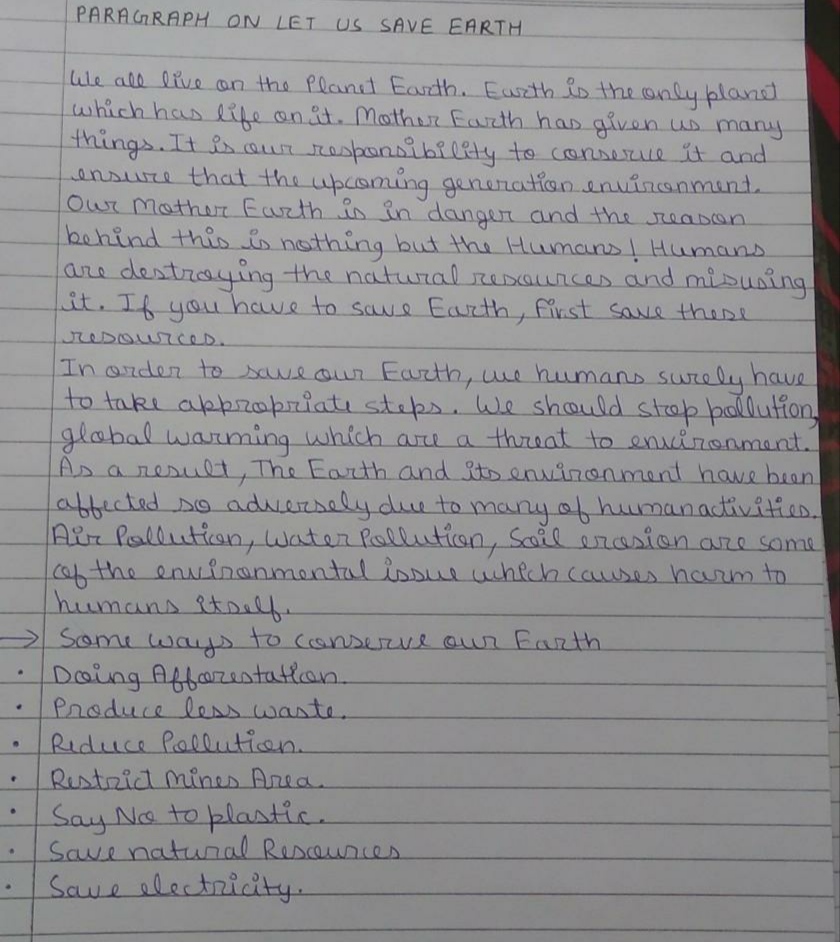 PARAGRAPH ON LET US SAVE EARTH
We all live on the Planet Earth. Earth is the only planet
which has life on it. Mother Earth has given us many
things. It is our responsibility to conserve it and
ensure that the upcoming generation environment.
Our Mother Earth is in danger and the reason
behind this is nothing but the Humans! Humans
are destroying the natural resources and misusing
it. If you have to save Earth, first save these
resources.
In order to save our Earth, we humans surely have
to take appropriate steps. We should stop pollution,
global warming which are a threat to environment.
As a result, The Earth and its environment have been
affected so adversely due to many of human activities.
Air Pollution, Water Pollution, Soil erosion are some
of the environmental issue which causes harm to
humans itself.
→ Some ways to conserve our Earth
• Doing Afforestation.
• Produce less waste.
• Reduce Pollution.
• Restrict Mines Area.
• Say No to plastic.
• Save natural Resources
• Save electricity.